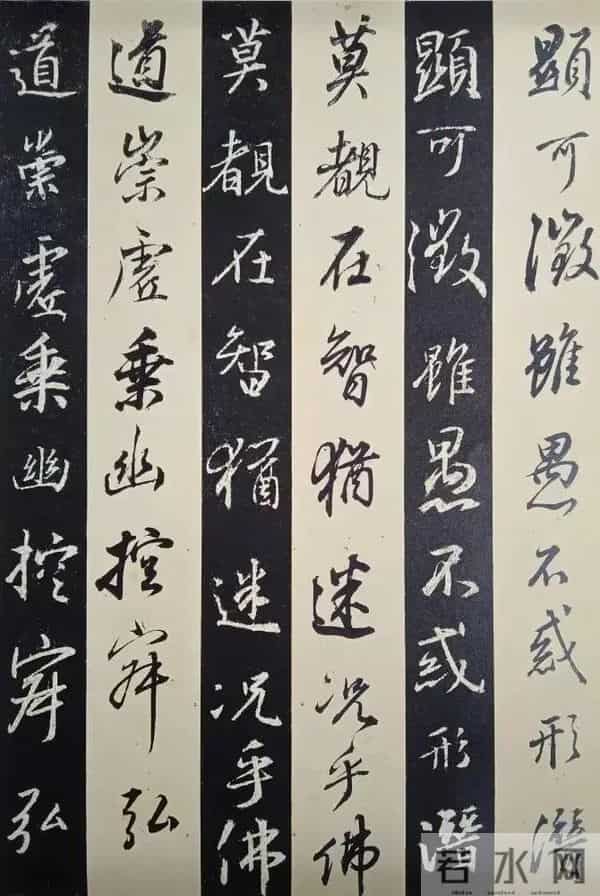 顯可徵雖愚不惑形潛
顯可徵雖愚不惑形潛
莫覩在智猶迷況乎佛
莫覩在智猶迷況乎佛
道崇虛乘幽控寂弘
道崇虛乘幽控寂弘
若水网